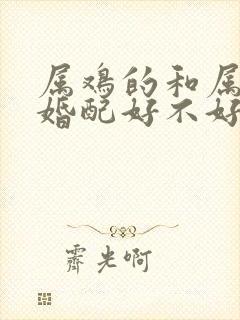 属鸡的和属
婚配好不好
霁光啊